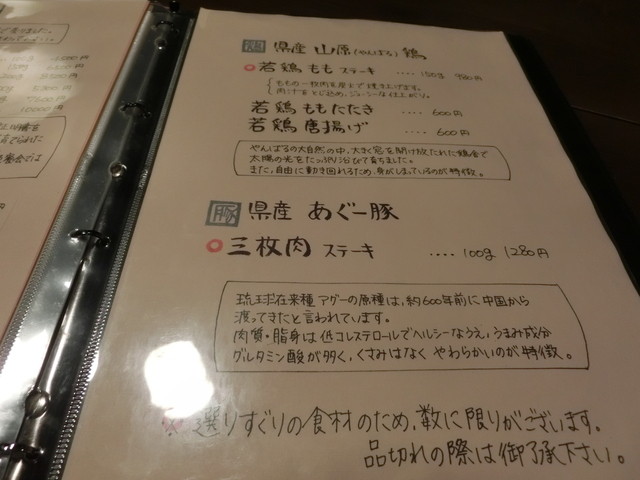 鶏 県産 山原(やんばる)鶏
○若鶏もも ステーキ ‥‥ 150g 980円
もも一枚肉を炭火で焼き上げます。
肉汁をとじ込め、ジューシーな仕上がり。
若鶏ももたたき ‥‥ 600円
若鶏唐揚げ ‥‥ 600円
やんばるの大自然の中、大きく窓を開け放たれた鶏舎で
太陽の光をたっぷり浴びて育ちました。
また、自由に動き回れるため、身がしまっているのが特徴。
豚 県産 あぐー豚
○三枚肉 ステーキ ‥‥ 100g 1280円
琉球在来種アグーの原種は、約600年前に中国から
渡ってきたと言われています。
肉質・脂身は低コレステロールでヘルシーなうえ、うまみ成分
グルタミン酸が多く、くさみはなく やわらかいのが特徴。
※選りすぐりの食材のため、数に限りがございます。
品切れの際は御了承下さい。